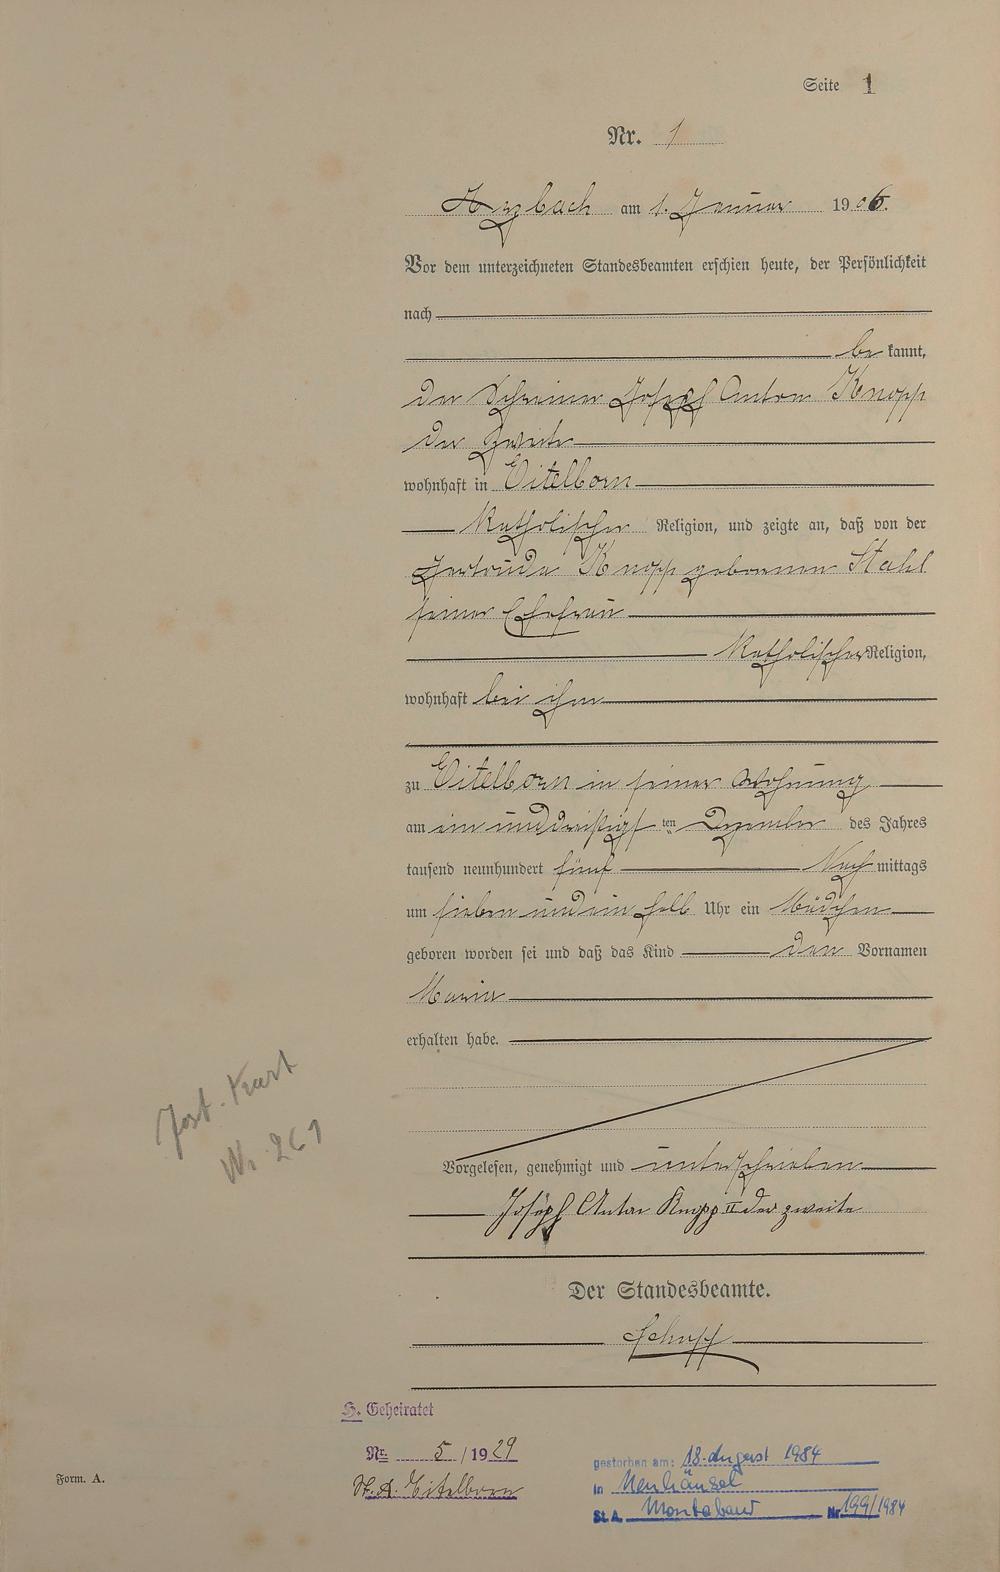 Seite 1
Nr. 1
Arzbach am 1. Januar 1906.
Vor dem unterzeichneten Standesbeamten erschien heute, der Persönlichkeit
nach
be kannt,
der Schreiner Joseph Anton Knopp
der Zweite
wohnhaft in Eitelborn
katholischer Religion, und zeigte an, daß von der
Gertrude Knopp geborenen Stahl
seiner Ehefrau
katholischer Religion,
wohnhaft bei ihm
zu Eitelborn in seiner Wohnung
am ein und dreißigsten Dezember des Jahres
tausend neunhundert fünf Nach mittags
um sieben und ein halb Uhr ein Mädchen
geboren worden sei und daß das Kind den Vornamen
Maria
erhalten habe.
Jost. Kurt
Nr. 261
Vorgelesen, genehmigt und unterschrieben
Joseph Anton Knopp II der zweite
Der Standesbeamte.
Schupp
H. Geheiratet
Nr. 5 / 1929
St. A. Eitelborn
gestorben am: 18. August 1984
in Neuhäusel
St. A. Montabaur Nr. 199/1984
Form. A.